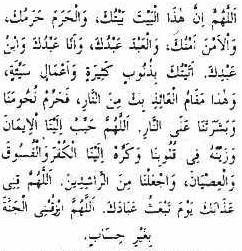 اَللّٰهُمَّ إِنَّ هٰذَا الْبَيْتَ بَيْتُكَ، وَالْحَرَمَ حَرَمُكَ،
وَالْأَمْنَ أَمْنُكَ، وَالْعَبْدَ عَبْدُكَ، وَأَنَا عَبْدُكَ وَابْنُ
عَبْدِكَ. أَتَيْتُكَ بِذُنُوبٍ كَثِيرَةٍ وَأَعْمَالٍ سَيِّئَةٍ،
وَهٰذَا مَقَامُ الْعَائِذِ بِكَ مِنَ النَّارِ، فَحَرِّمْ لُحُومَنَا
وَبَشَرَتَنَا عَلَى النَّارِ. اَللّٰهُمَّ حَبِّبْ إِلَيْنَا الْإِيمَانَ
وَزَيِّنْهُ فِي قُلُوبِنَا وَكَرِّهْ إِلَيْنَا الْكُفْرَ وَالْفُسُوقَ
وَالْعِصْيَانَ، وَاجْعَلْنَا مِنَ الرَّاشِدِينَ. اَللّٰهُمَّ قِنِي
عَذَابَكَ يَوْمَ تَبْعَثُ عِبَادَكَ. اَللّٰهُمَّ ارْزُقْنِي الْجَنَّةَ
بِغَيْرِ حِسَابٍ.